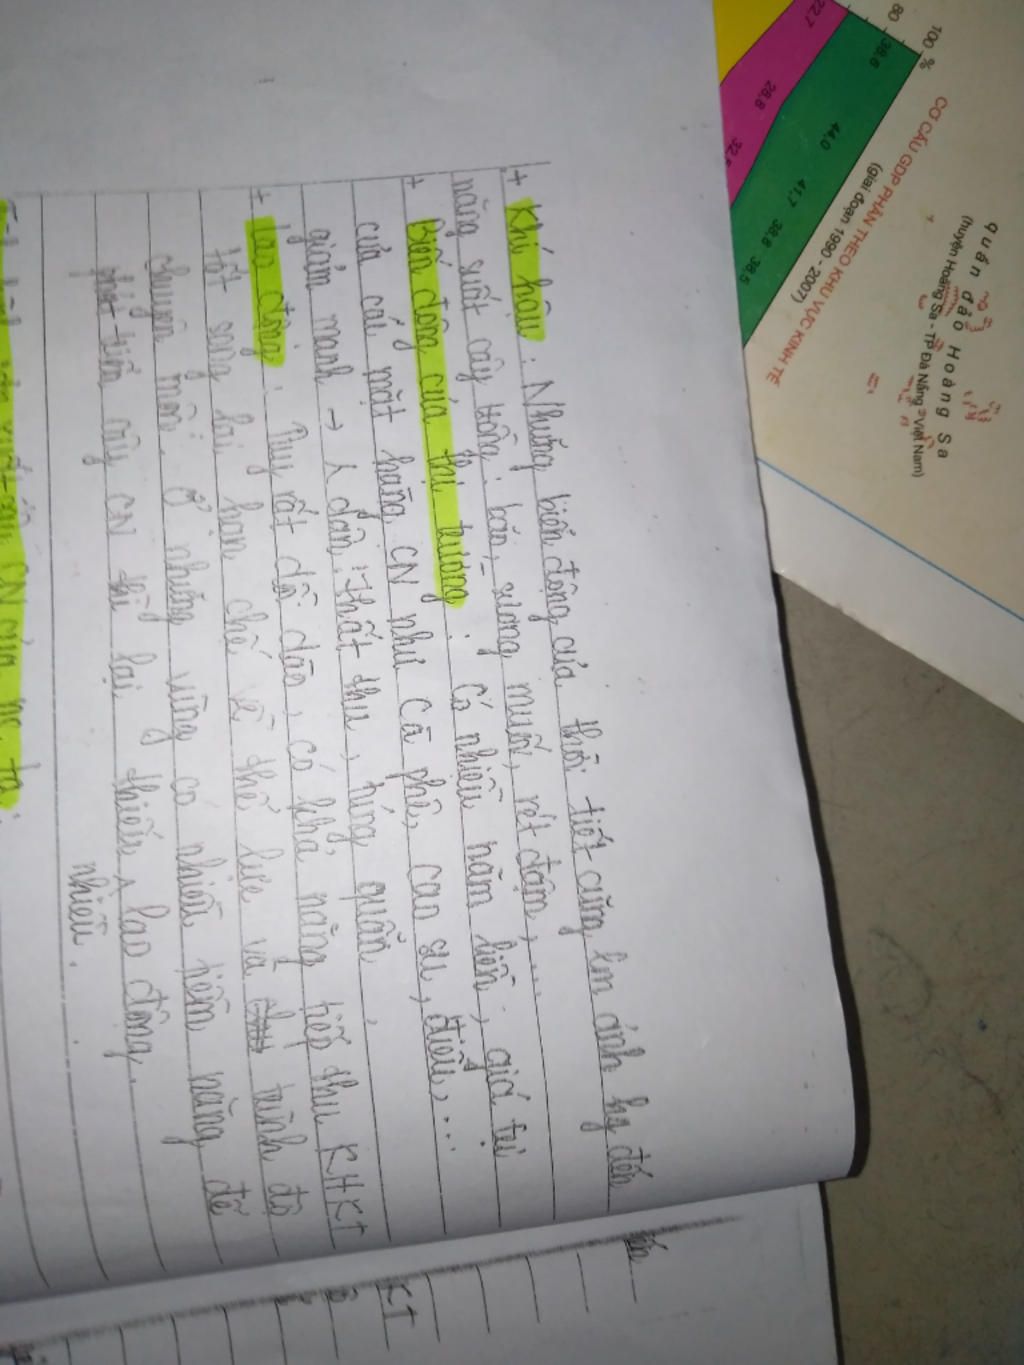 + Khí hậu: Những biến động của thời tiết cũng làm ảnh hg đến
năng suất cây trồng: bão, sương muối, rét đậm,...
+ Biến động của thị trường: Có nhiều năm liền, giá trị
của các mặt hàng CN như cà phê, cao su, điều,...
giảm mạnh → dân thất thu, túng quẫn.
+ Lao động: Tuy rất dồi dào, có khả năng tiếp thu KHKT
tốt song lại hạn chế về thể lực và trình độ
chuyên môn. Ở những vùng có nhiều tiềm năng để
cây CN thì lại thiếu lao động.
nhiều.
CN của nc ta
KT
22.7
28,8
32,5
38,6
44,0
41,7
38,8
38,5
80
100 %
CƠ CẤU GDP PHÂN THEO KHU VỰC KINH TẾ
(giai đoạn 1990 - 2007)
quần đảo Hoàng Sa
(huyện Hoàng Sa - TP Đà Nẵng - Việt Nam)